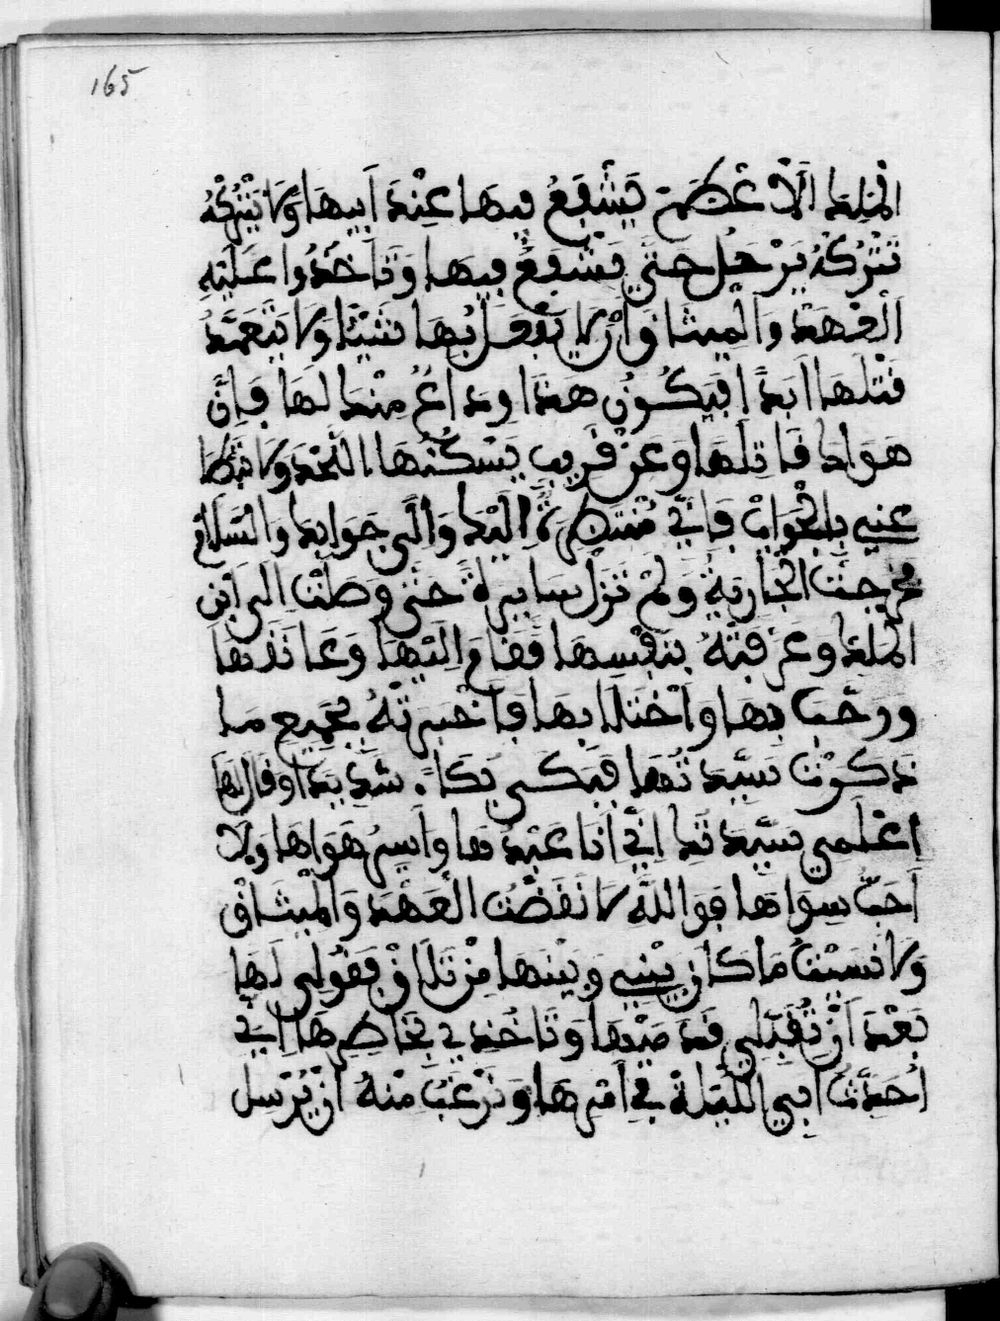 165
الملك الاَعْظم يَشْفَعُ فيها عِنْدَ اَبيهَا وَلا يَتْرُكْهُ
تَتْرُكْهُ يَرْحَل حتى يَشْفَع فيها وَتَاخُدُوا عَليْهِ
العَهْدَ والمِيثَاق وَاَنْ لا يَفْعَل بُها شَيْئا ولا يَتَعَمَّدُ
قتلها اَبَدًا فيَكُونُ هَدَا وداعُ منك لها فإِنّ
هَوَاك قاتلها وعَنْ قَريب يَسْكُنُها اللحْد ولا تبطا
عني بالجْوَاب فَاِنّي مُنْتَظِرَةٌ اليْك وَالَى جوابك والسَّلَام
فخرجَت الجَارية وَلمْ تَزَل سايرة حَتى وصَلَت الى ابْن
المَلك وعَرّفتْهُ بنَفْسها فقَام الَيْها وَعَانَقها
ورحَّبَ بها واخْتَلَا بها فاَخْبَرتْهُ بجَميع ما
دكرَتْ سيّدتُها فبكى بكاءً شديدًا وقال لها
اعْلمي سيّدتك انِّي اَنا عَبْدُها واَسِيرُ هَوَاها ولا
اَحبّ سِوَاها فوالله لا نَقَضْتُ العَهْدَ والميثاقْ
ولا نسيْتُ ما كان بيْني وبيْنها منْ تلاق فقُولي لَها
بَعْدَ اَنْ تُقَبّلي قدميْها وَتاخُدي بخَاطِرهَا اِنّي
اُحَدّثُ ابي الليْلة في اَمْرها ونرْغَبُ منْهُ اَنْ يُرْسل